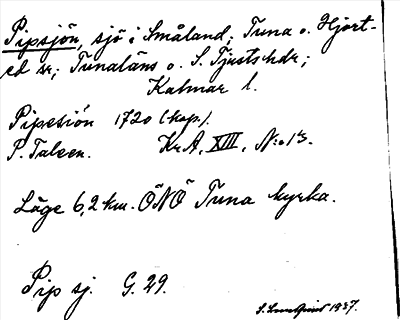 Pipsjön, sjö i Småland; Tuna o. Hjort-
ed sr; Tunaläns o. S. Tjusts hdr;
Kalmar l.
Pipesiön 1720 (kop).
P. Taleen. Kr.A, XIII, N:o 13.
Läge 6,2 km. ÖNÖ Tuna kyrka.
Pip sj. G. 29.
1937.